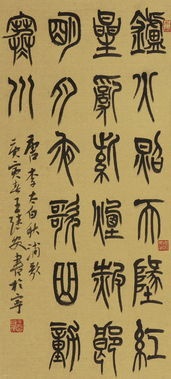 鑪火照天墬紅
星亂紫煙赧郎
明月夜歌曲動
寒川
唐李太白秋浦歌
庚寅春王書於寧